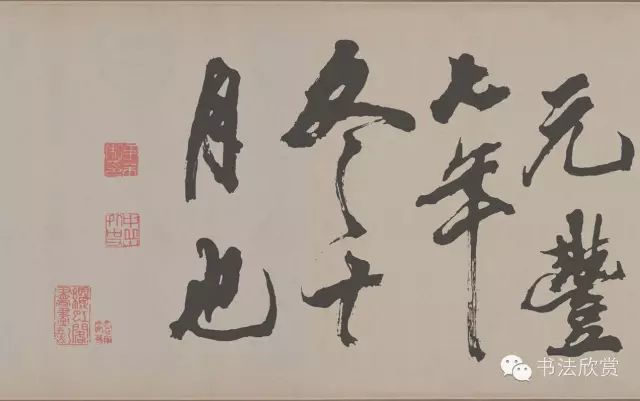 元豐
七年
冬十
月也
书法欣赏